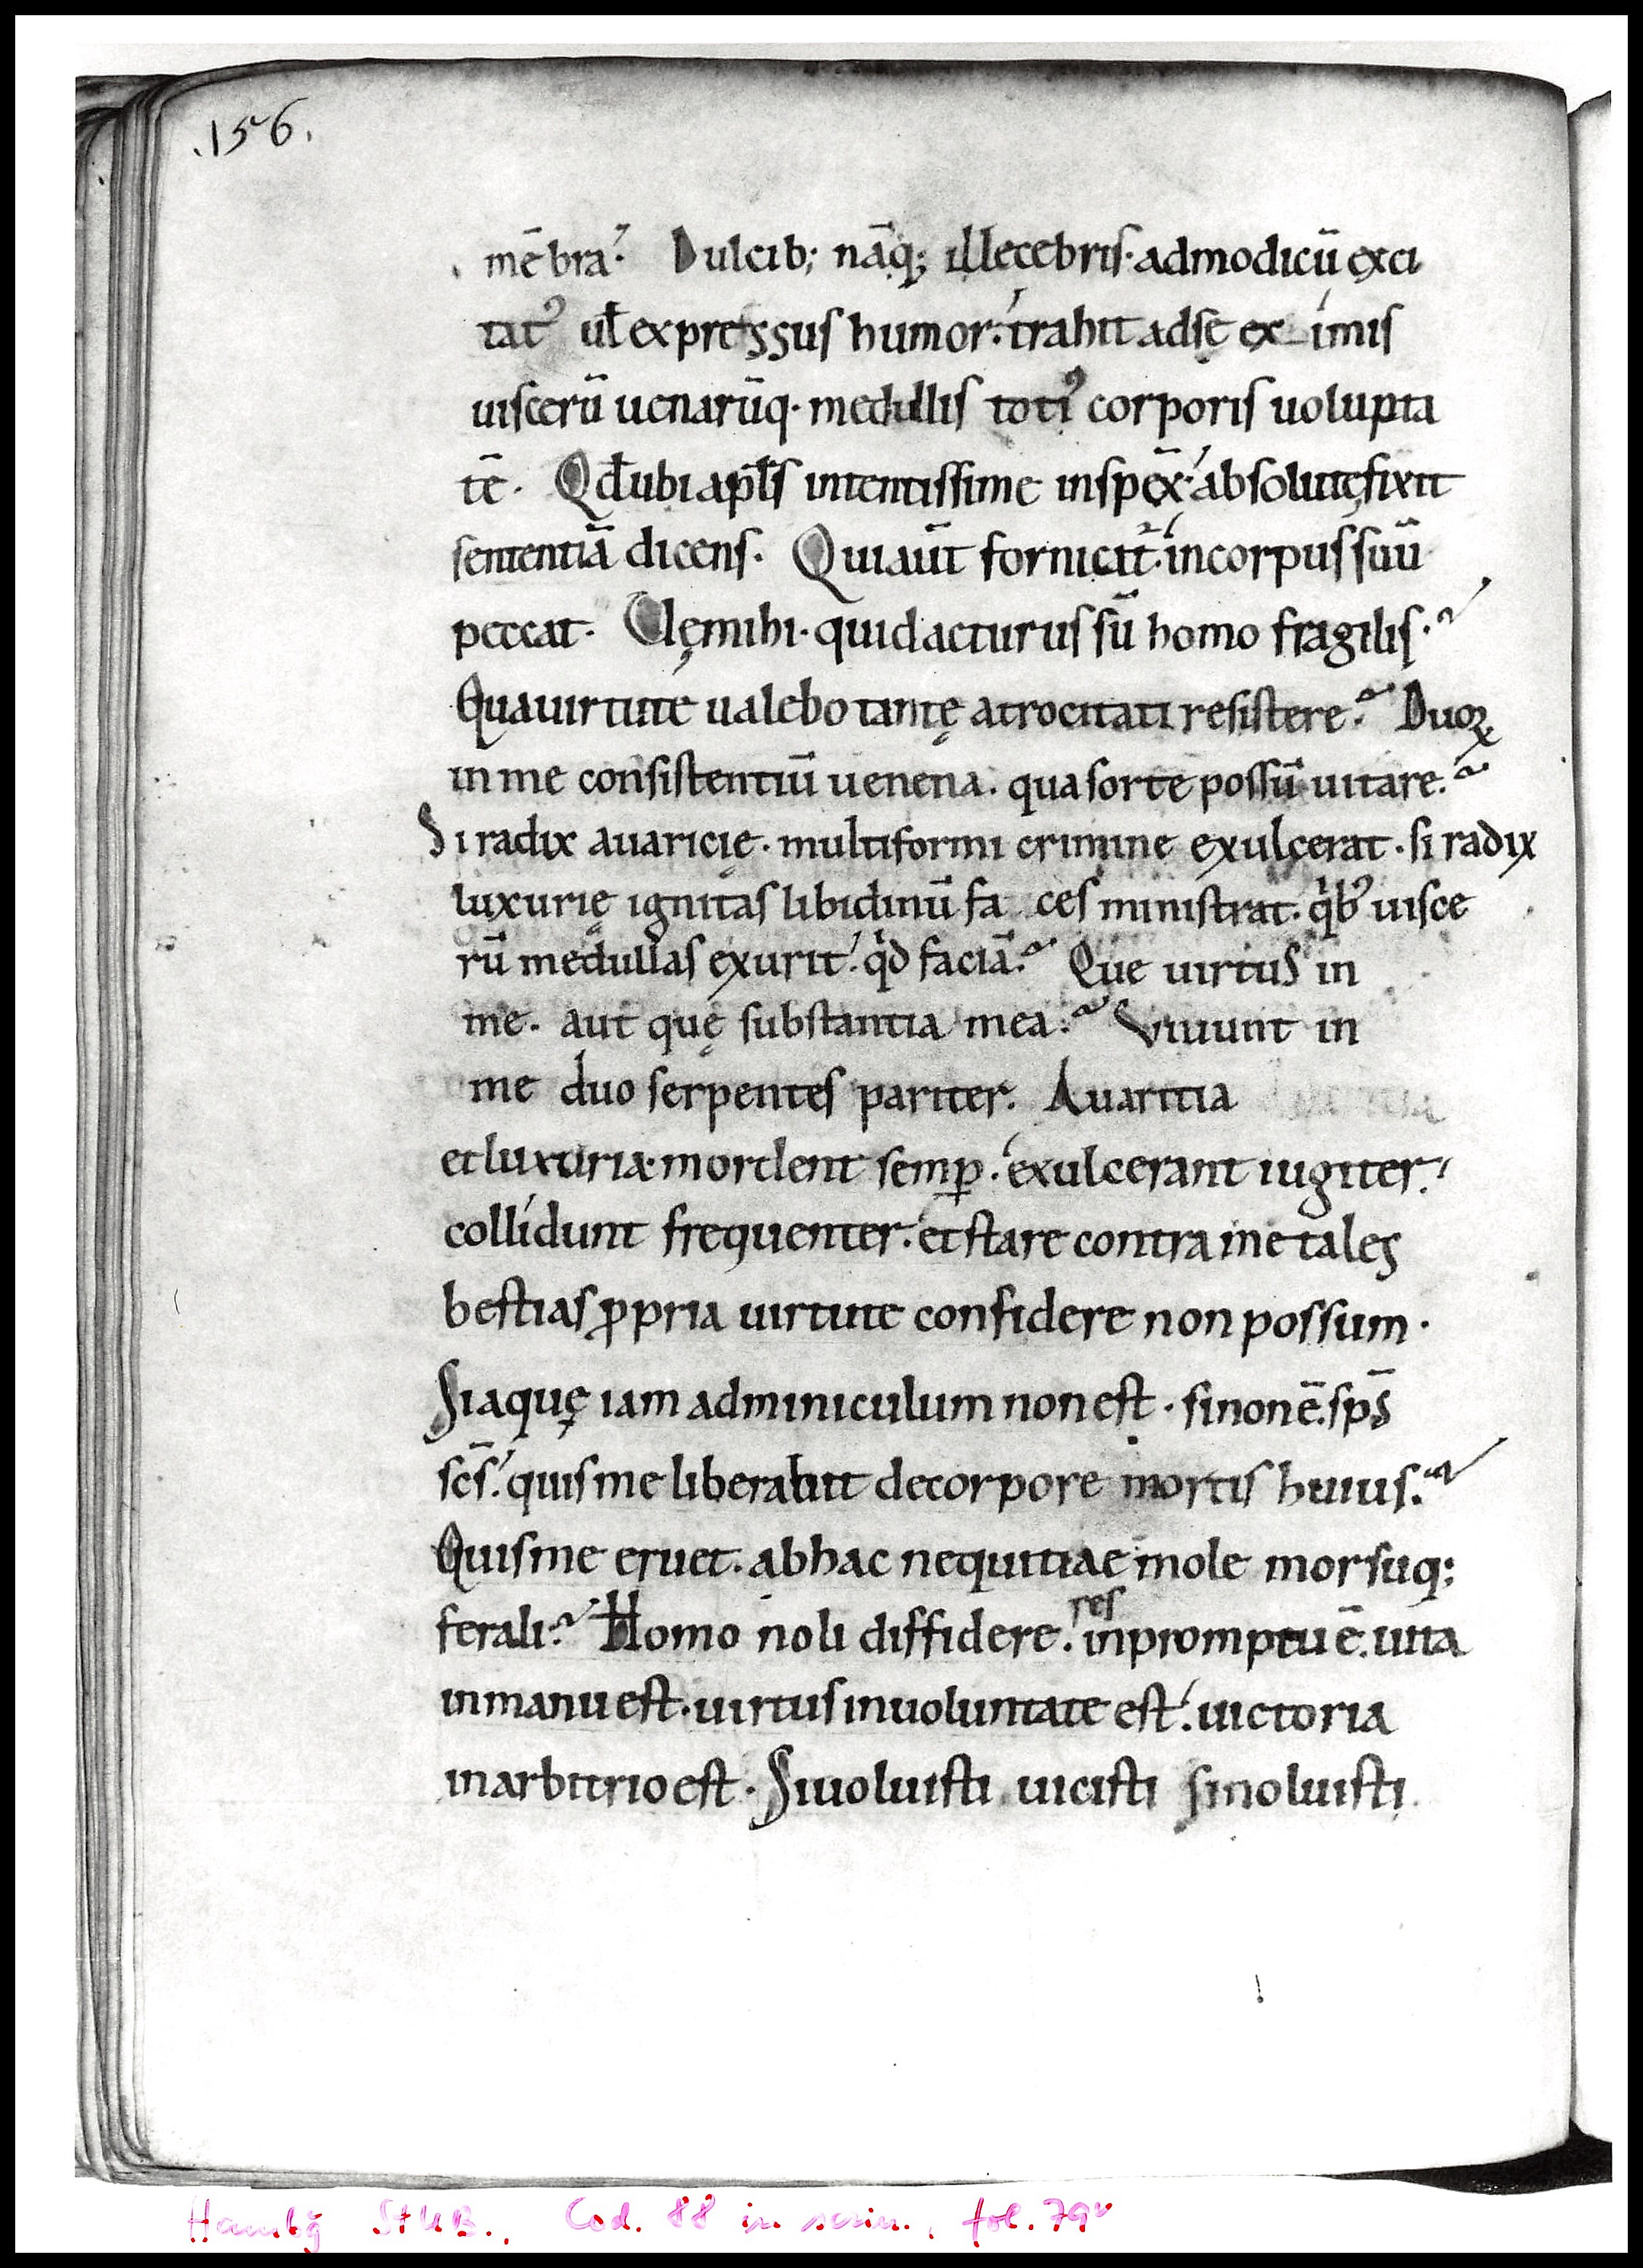 .156.
mēbra. Dulcib; nāq; illecebris. admodicū exci
tatꝰ ul̄ expressus humor. trahit adse ex imis
uiscerū uenarūq. medullis totiꝰ corporis uolupta
tē. Qd̄ ubi apl̄s intentissime inspex̄. absolutę fixit
sententiā dicens. Qui aūt fornicat̄. incorpus suū
peccat. Uę mihi. quid acturus sū homo fragilis.
Qua uirtute ualebo tantę atrocitati resistere. Duoꝝ
in me consistentiū uenena. qua sorte possū uitare.
Si radix auaricię. multiformi crimine exulcerat. si radix
luxurię ignitas libidinū fa ces ministrat. qͥbꝰ uisce
rū medullas exurit. qͥd faciā. Que uirtus in
me. aut quę substantia mea. Viuunt in
me duo serpentes pariter. Auaritia
et luxuria. mordent semꝑ. exulcerant iugiter.
collidunt frequenter. et stare contra me tales
bestias ꝓpria uirtute confidere non possum.
Si aquę iam adminiculum non est. si non ē. sp̄s
sc̄s. quis me liberabit de corpore mortis huius.
Quis me eruet. ab hac nequitiae mole morsuq;
ferali. Homo noli diffidere. res inpromptu ē. uita
in manu est. uirtus inuoluntate est. uictoria
in arbitrio est. Si uoluisti uicisti si noluisti
Hambg StUB., Cod. 88 in scrin., fol. 79v